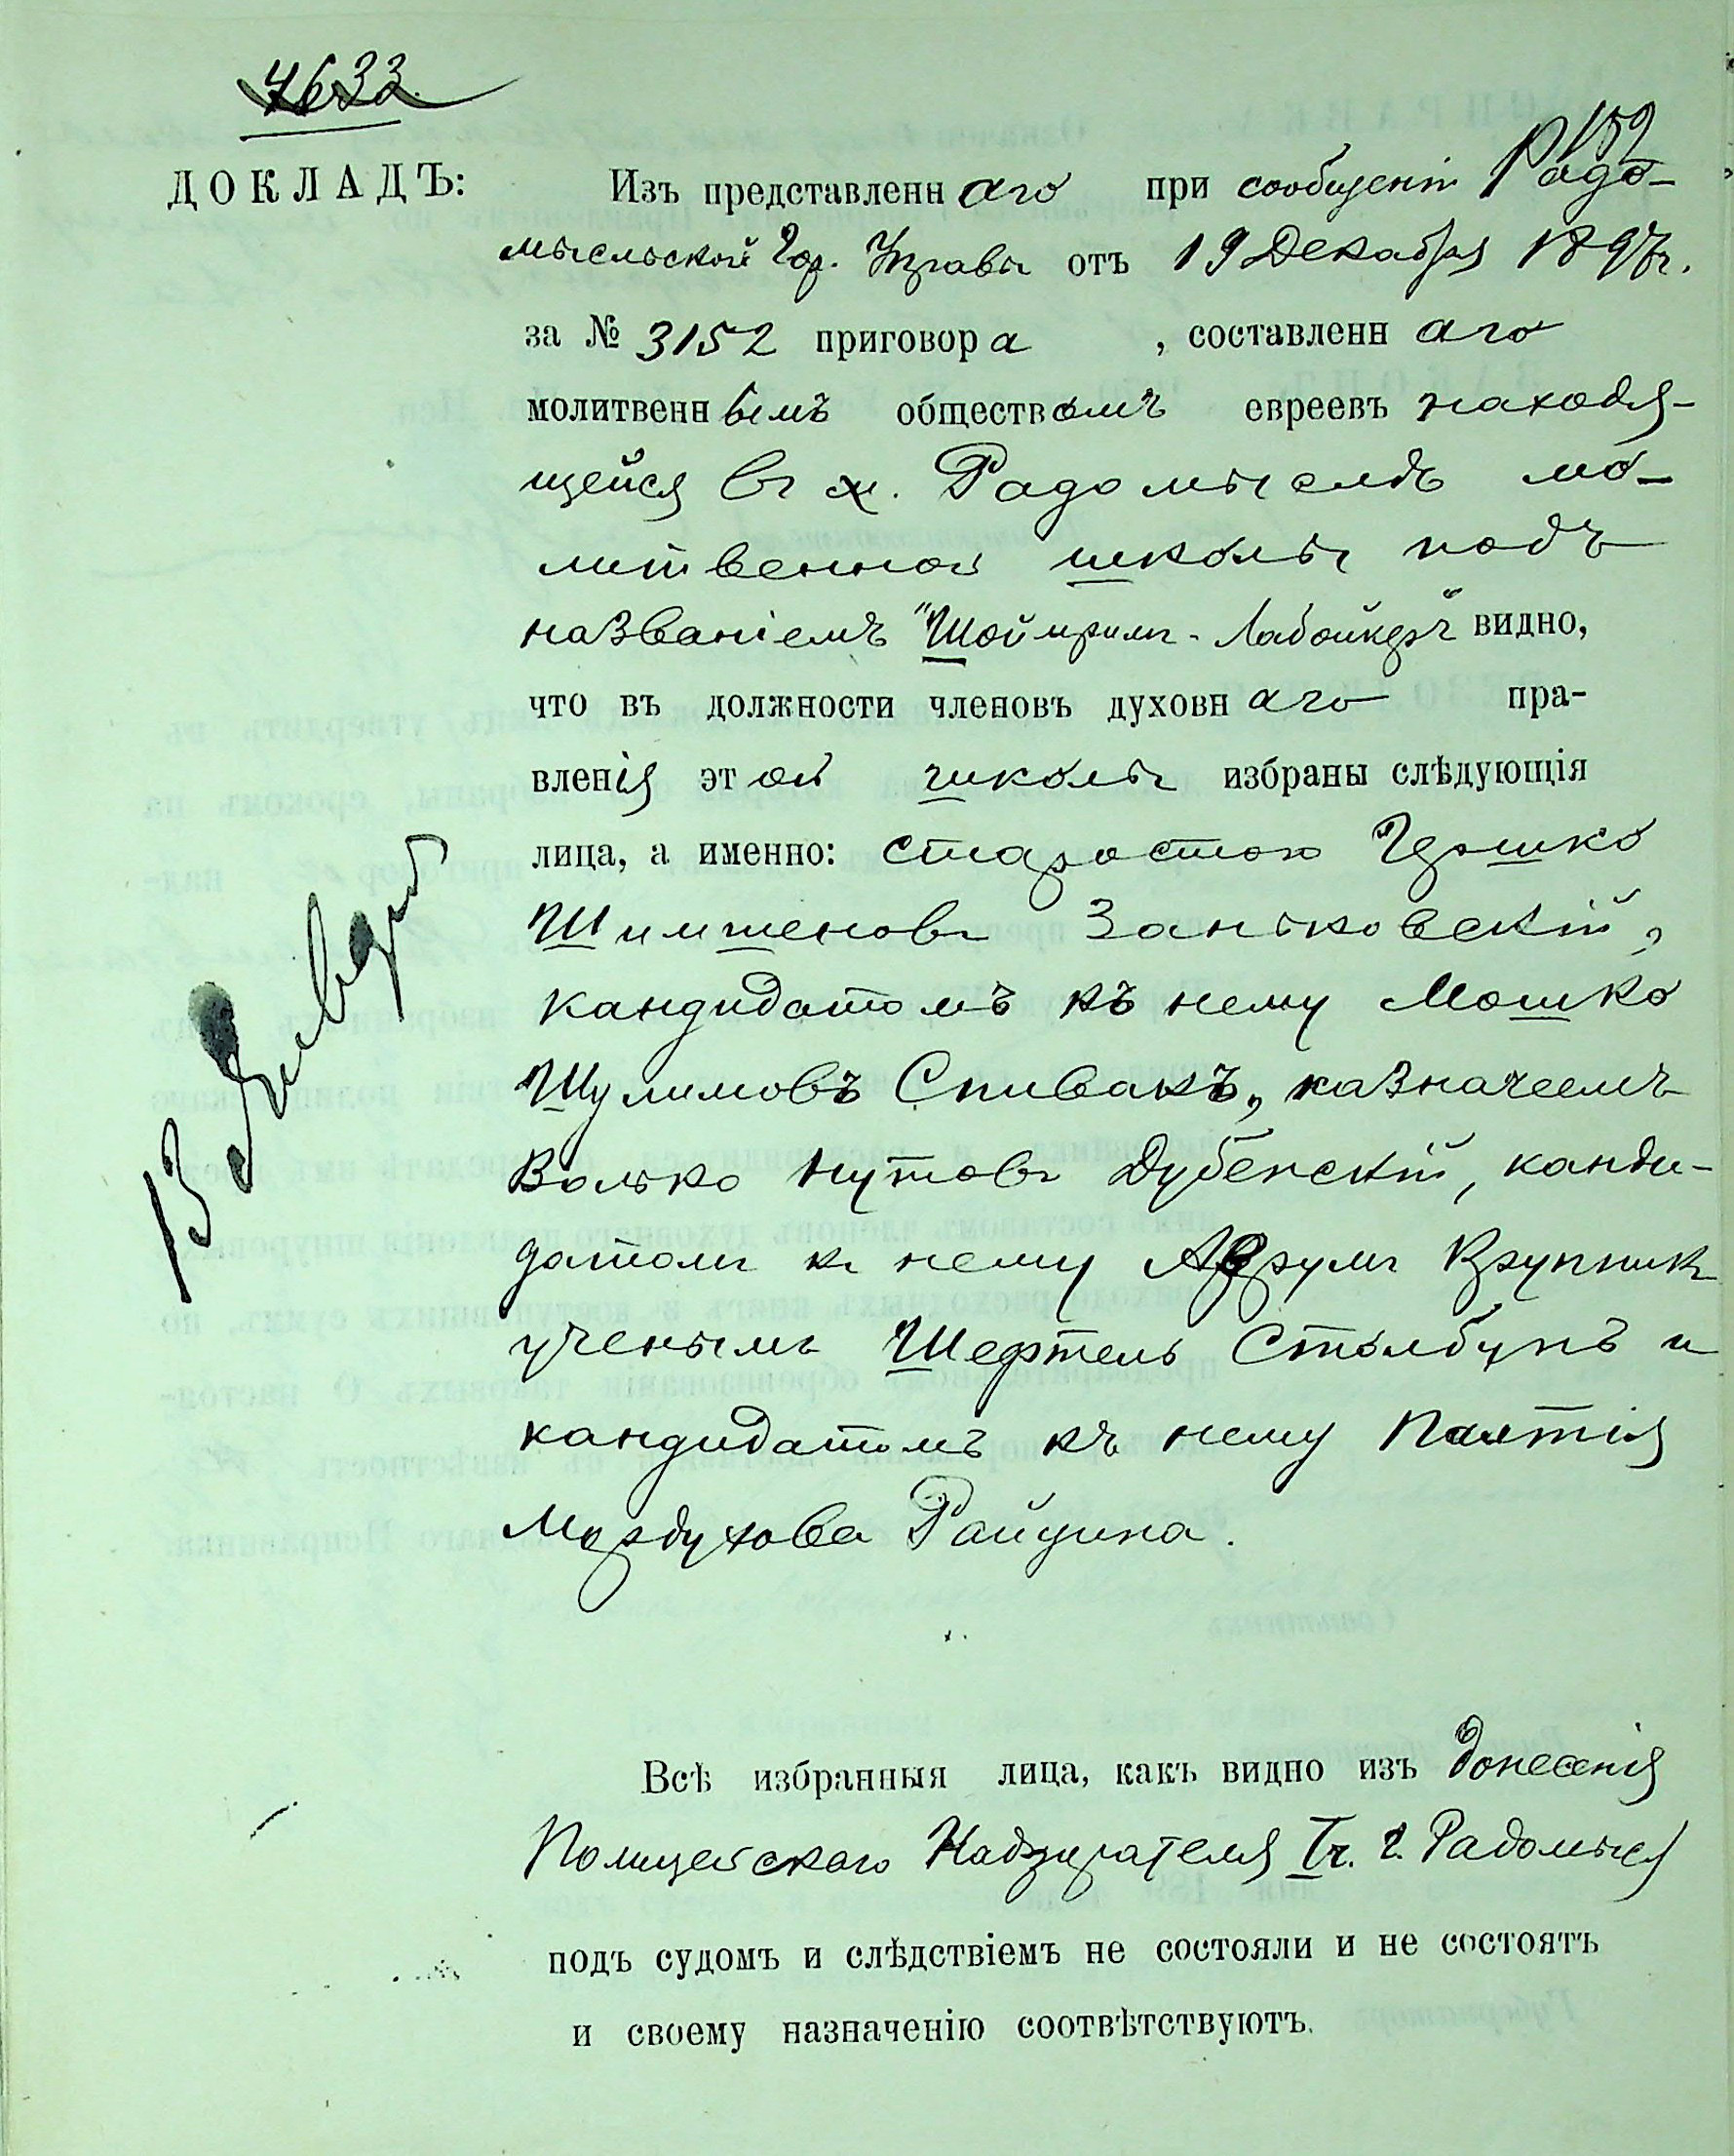 4633
159
ДОКЛАДЪ: Изъ представленнаго при сообщеніи Радо-
мысльской Гор. Управы отъ 19 Декабря 1897г.
за № 3152 приговора, составленнаго
молитвеннымъ обществомъ евреевъ находя-
щейся въ м. Радомыслѣ мо-
литвенной школы подъ
названіемъ "Шоймримъ-Лабойкеръ" видно,
что въ должности членовъ духовнаго пра-
вленія этой школы избраны слѣдующія
лица, а именно: старостою Гершко
Шимшеновъ Заньковскій,
кандидатомъ къ нему Мошко
Шулимовъ Спивакъ, казначеемъ
Волько Нутовъ Дубенскій, канди-
датомъ къ нему Аврумъ Крупникъ
ученымъ Шефтель Столбунъ и
кандидатомъ къ нему Палтія
Мордухова Райцина.
13 Января
Всѣ избранныя лица, какъ видно изъ донесенія
Полицейскаго Надзирателя I ч. г. Радомысля
подъ судомъ и слѣдствіемъ не состояли и не состоятъ
и своему назначенію соотвѣтствуютъ.